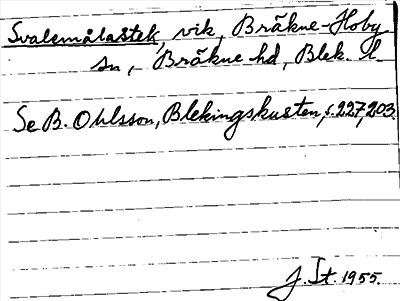 Svalemålastek, vik, Bräkne-Hoby
sn, Bräkne hd, Blek. l.
Se B. Ohlsson, Blekingskusten, s. 227, 203.
J. St. 1955.